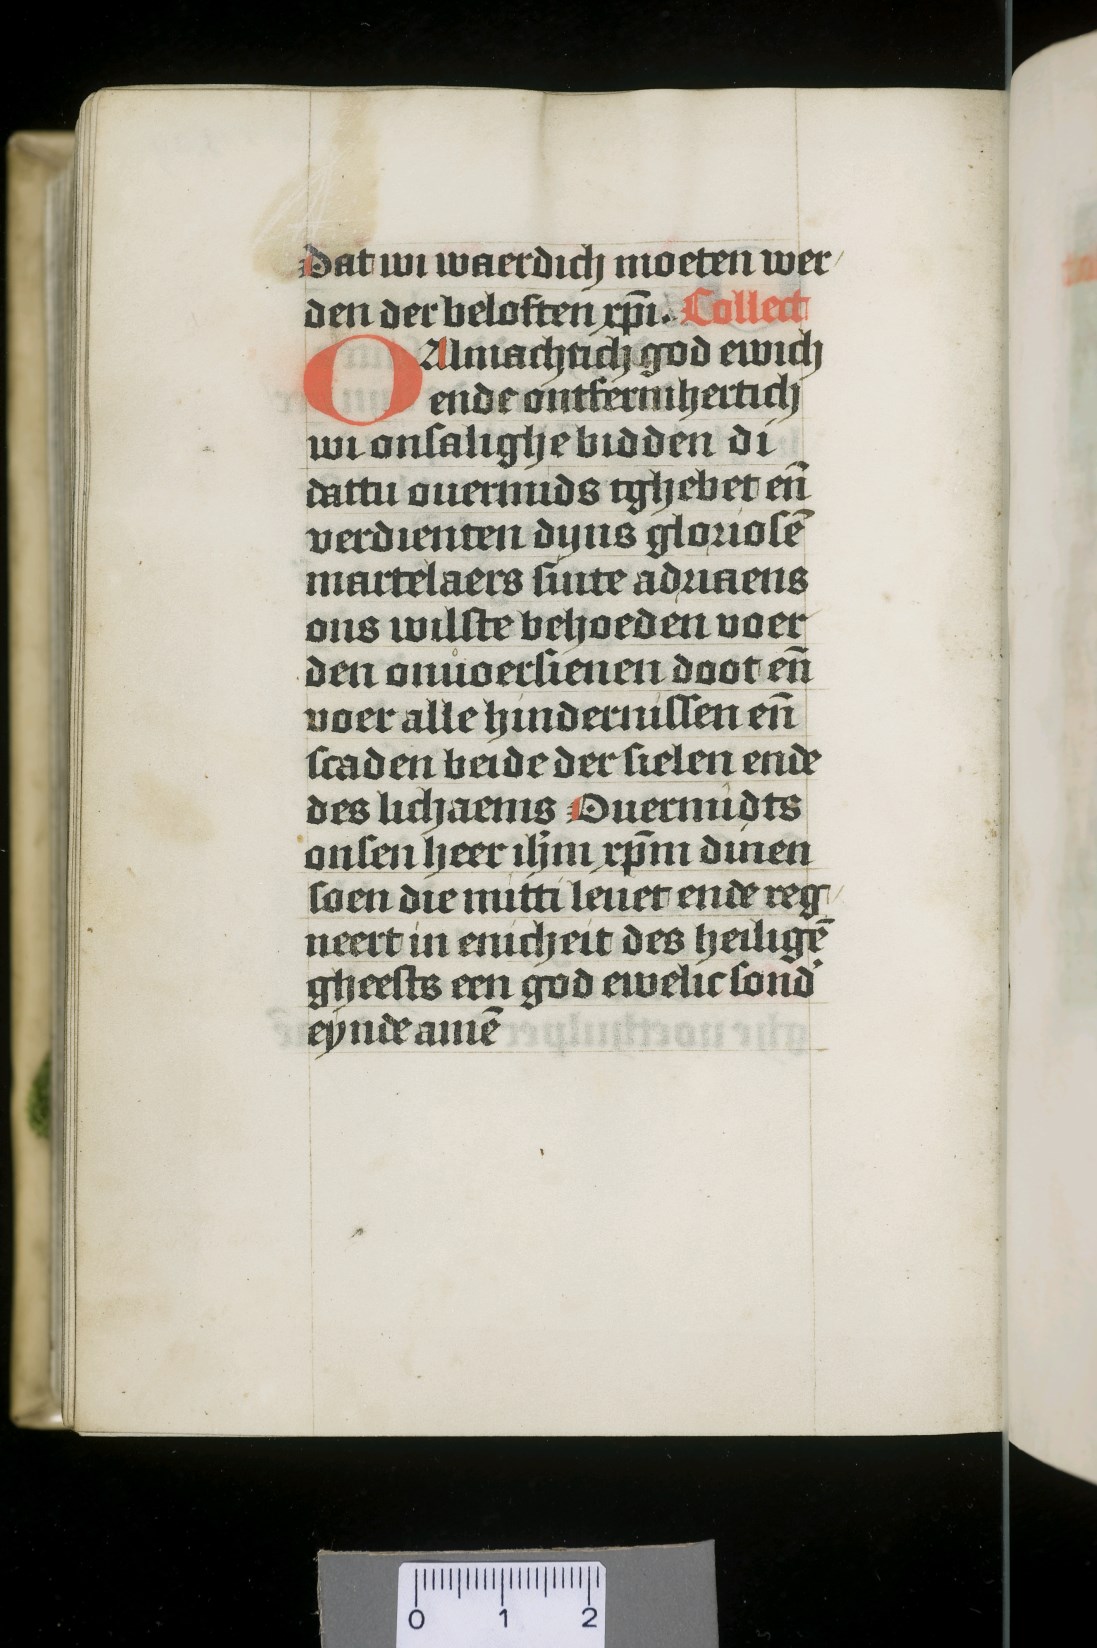 Dat wi waerdich moeten wer/
den der beloften xp̄i. Collect
O Almachtich god ewich
ende ontfermhertich
wi onsalighe bidden di
dattu ouermids tghebet en̄
verdienten dijns gloriosē
martelaers sinte adriaens
ons wilste behoeden voer
den onuoersienen doot en̄
voer alle hindernissen en̄
scaden beide der sielen ende
des lichaems Ouermidts
onsen heer ihm̄ xp̄m dinen
soen die mitti leuet ende reg/
neert in enicheit des heiligē
gheests een god ewelic sond'
eynde amē
0 1 2